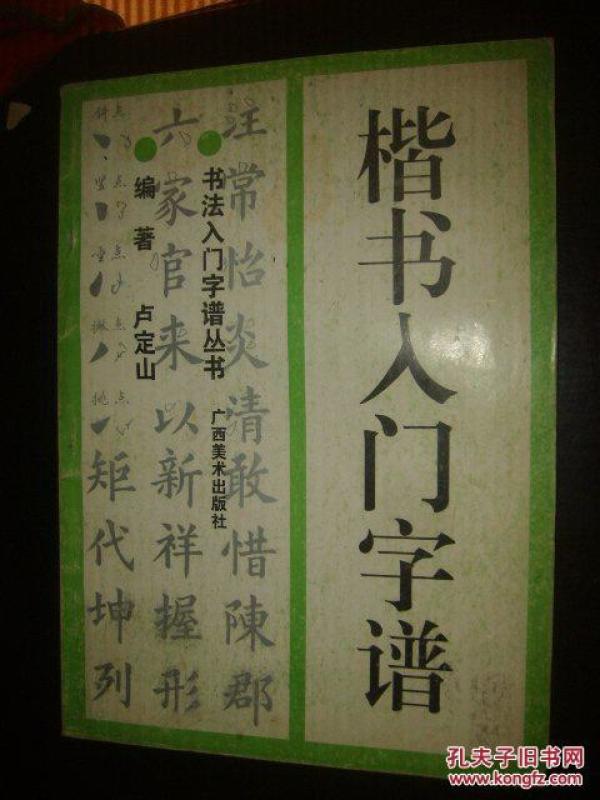 楷书入门字谱
书法入门字谱丛书
广西美术出版社
编著 卢定山
汪常怡炎清敢惜陳郡
六家官来以新祥握形
矩代坤列
孔夫子旧书网
www.kongfz.com